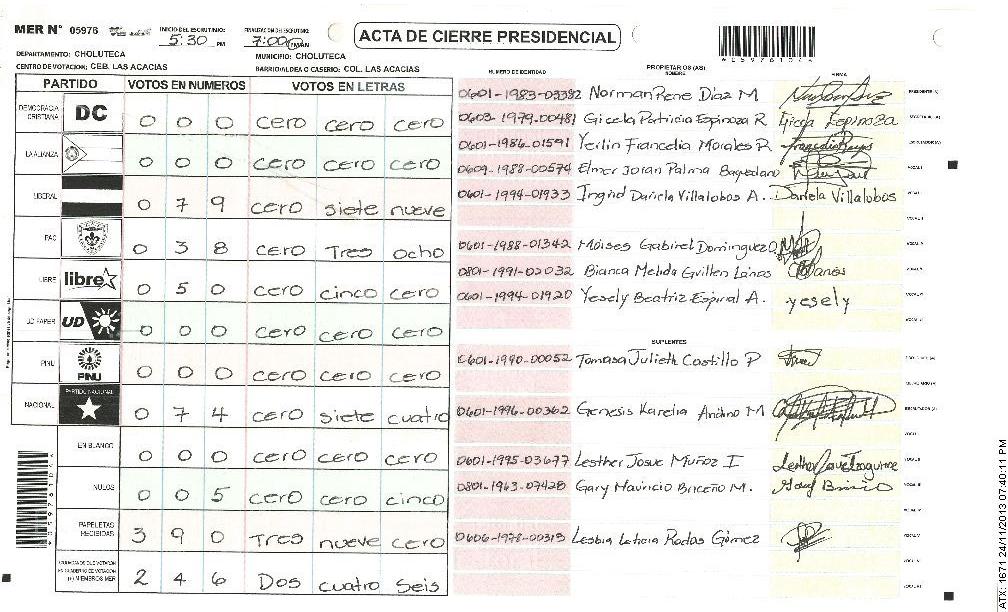 MER N° 05976 INICIO DEL ESCRUTINIO: 5:30 PM FINALIZACION DEL ESCRUTINIO: 7:00
ACTA DE CIERRE PRESIDENCIAL
DEPARTAMENTO: CHOLUTECA MUNICIPIO: CHOLUTECA
CENTRO DE VOTACION: CEB. LAS ACACIAS BARRIO/ALDEA O CASERIO: COL. LAS ACACIAS
PARTIDO VOTOS EN NUMEROS VOTOS EN LETRAS
DEMOCRACIA CRISTIANA DC 0 0 0 cero cero cero
LA ALIANZA 0 0 0 cero cero cero
LIBERAL 0 7 9 cero siete nueve
PAC 0 3 8 cero Tres ocho
LIBRE libre 0 5 0 cero cinco cero
UD FAPER UD 0 0 0 cero cero cero
PINU PINU 0 0 0 cero cero cero
NACIONAL PARTIDO NACIONAL 0 7 4 cero siete cuatro
EN BLANCO 0 0 0 cero cero cero
NULOS 0 0 5 cero cero cinco
PAPELETAS RECIBIDAS 3 9 0 Tres nueve cero
MIEMBROS MER 2 4 6 Dos cuatro Seis
NUMERO DE IDENTIDAD PROPIETARIOS (AS) NOMBRE FIRMA
0601-1983-03382 Norman Rene Diaz M
0603-1979-00481 Gicela Patricia Espinoza R Gicela Espinoza
0601-1986-01591 Yerlin Francelia Morales R
0609-1988-00574 Elmer Joran Palma Baquedano
0601-1994-01933 Ingrid Dariela Villalobos A. Dariela Villalobos
0601-1988-01342 Moises Gabriel Dominguez O
0801-1991-02032 Bianca Melida Guillen Lainas
0601-1994-01920 Yesely Beatriz Espinal A. yesely
SUPLENTES
0601-1990-00052 Tomasa Julieth Castillo P
0601-1996-00362 Genesis Karelia Andino M
0601-1995-03677 Lesther Josue Muñoz I
0801-1963-07428 Gary Mauricio Briceño M.
0606-1978-00313 Lesbia Leticia Rodas Gómez
ATX: 1671 24/11/2013 07:40:11 PM